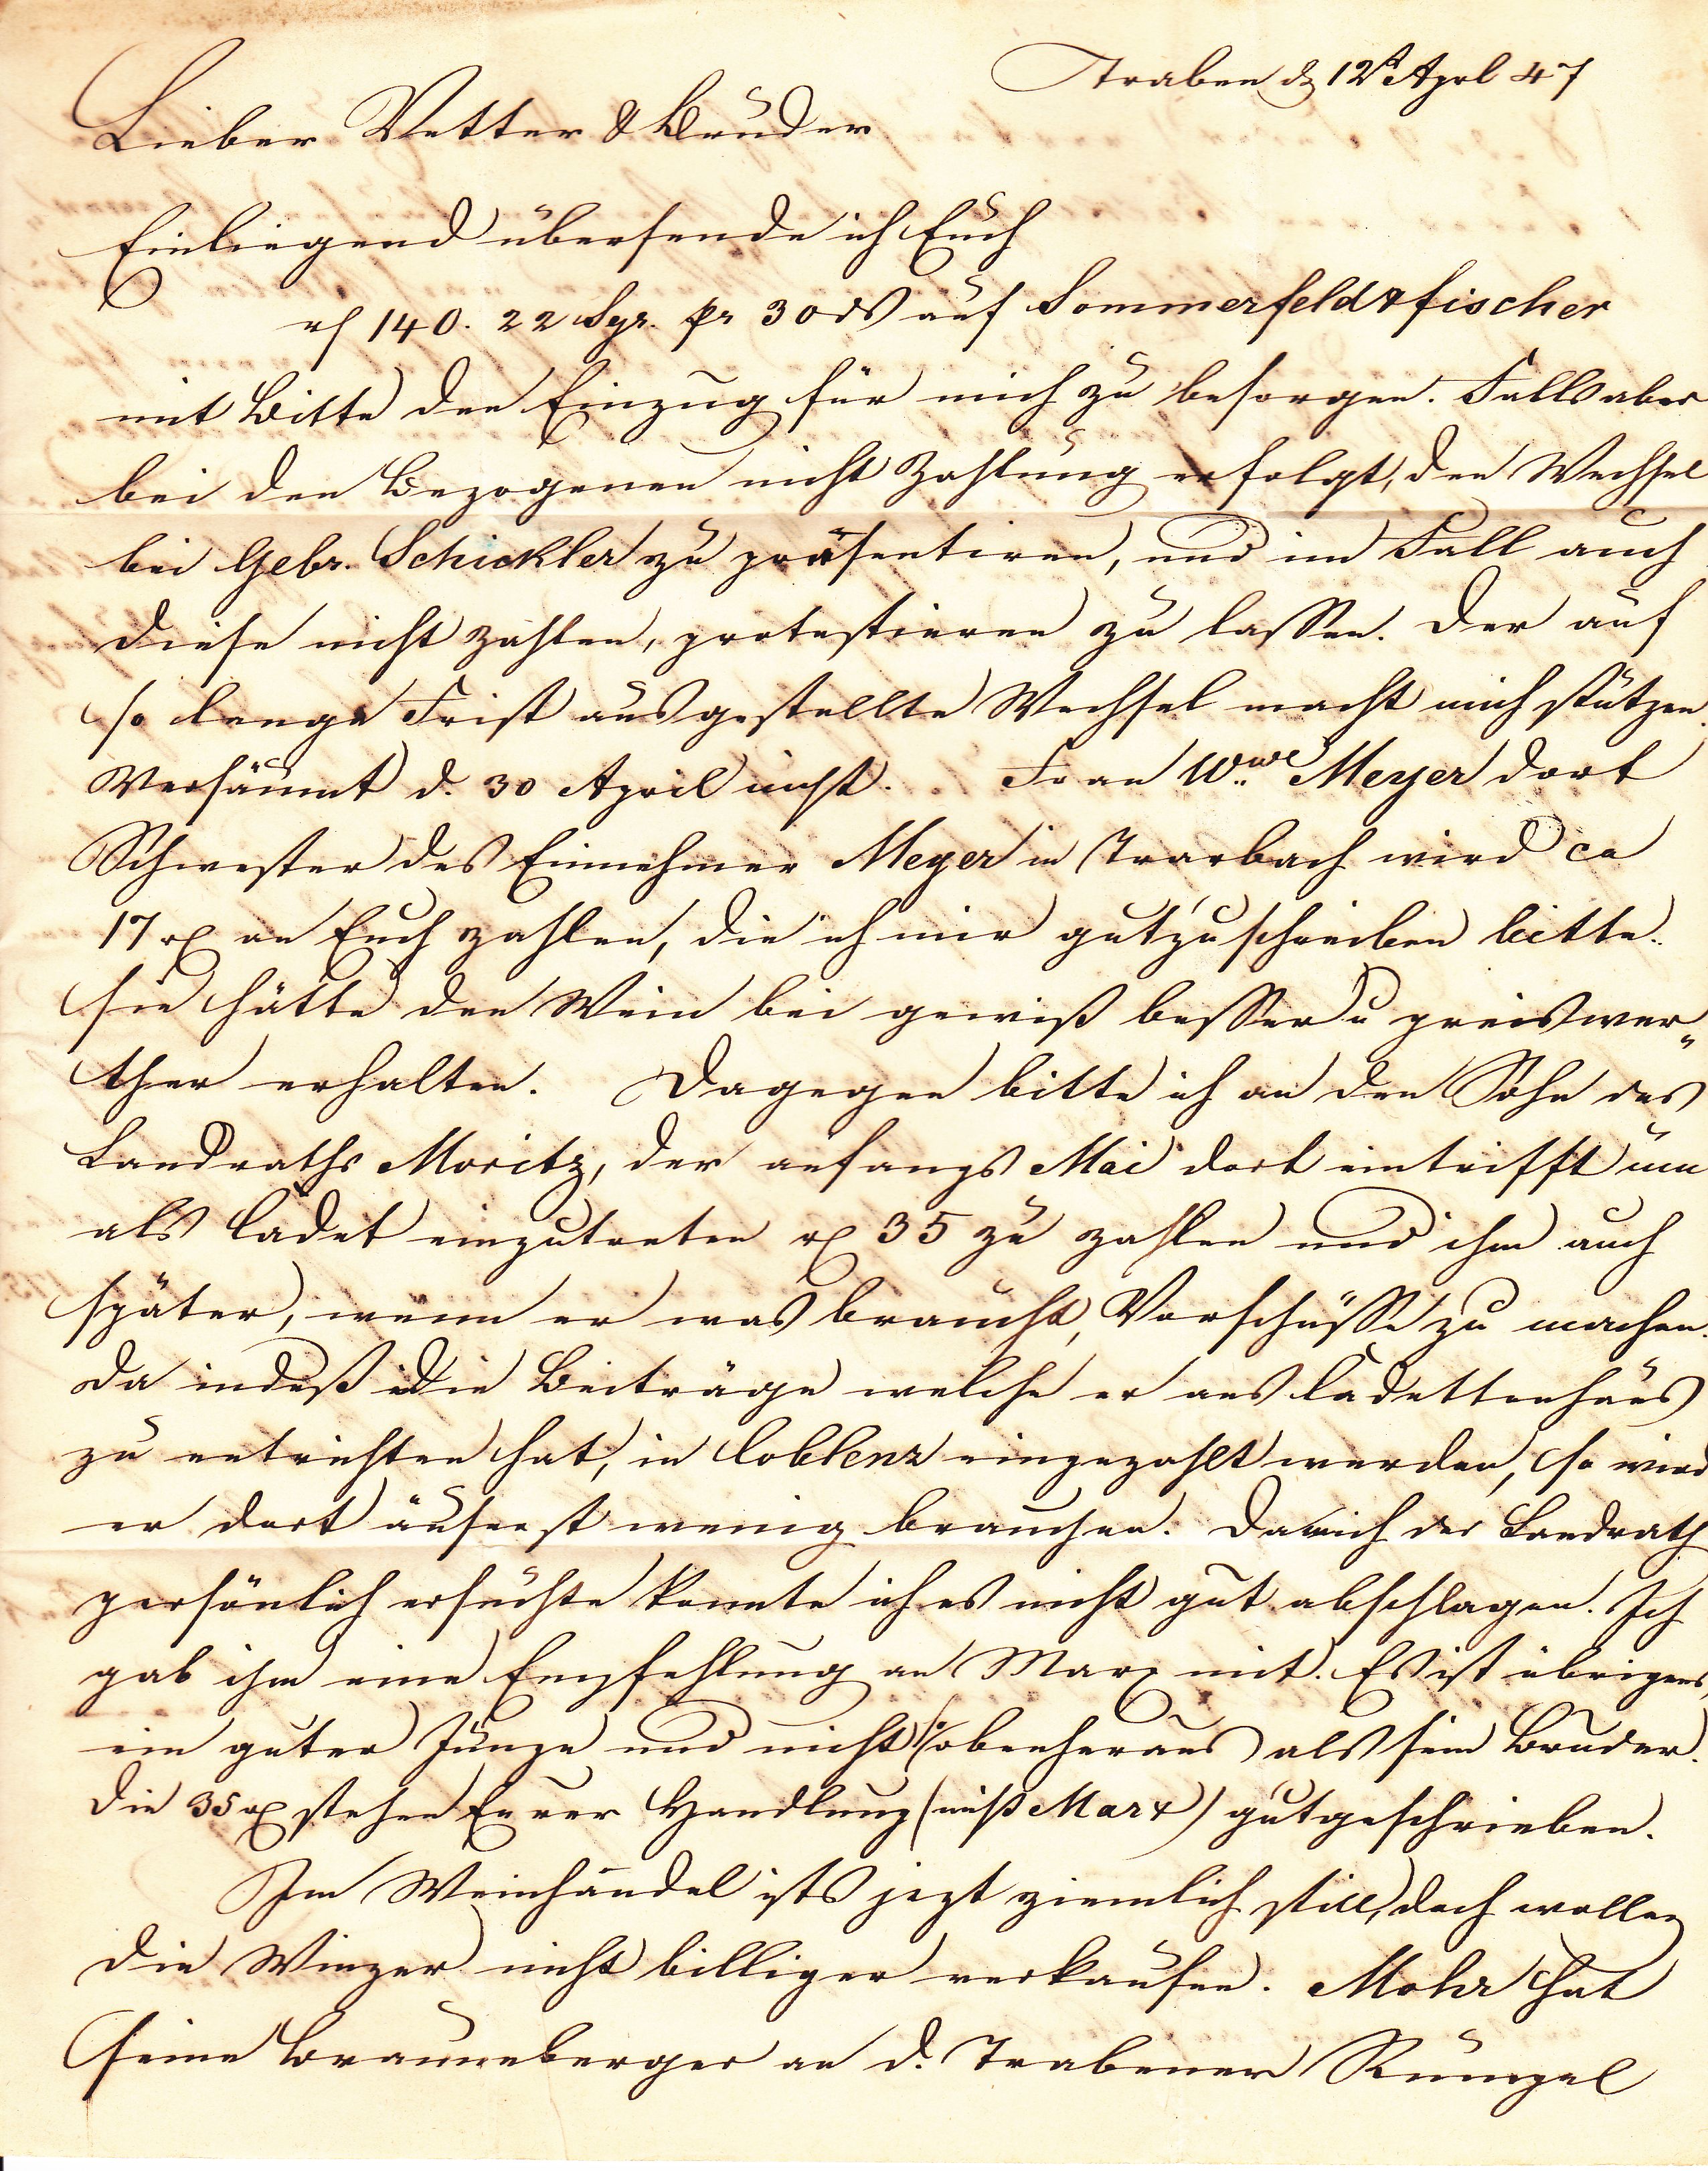 Traben d 12t Aprl 47
Lieber Vetter & Bruder
Einliegend übersende ich Euch
rh 140. 22 Sgr. pr 30 ds auf Sommerfeld & fischer
mit Bitte den Einzug für mich zu besorgen. Falls aber
bei den Bezogenen nicht Zahlung erfolgt, den Wechsel
bei Gebr. Schickler zu präsentiren, und im Fall auch
diese nicht zahlen, protestieren zu lassen. Der auf
so lange Frist ausgestellte Wechsel macht mich stutzen.
Versäumt d. 30 April nicht. Frau Wwe Meyer dort
Schwester des Einnehmer Meyer in Trarbach wird ca
17 rh an Euch zahlen, die ich mir gutzuschreiben bitte.
sie hätte den Wein bei gewiß besser u preiswer„
ther erhalten. Dagegen bitte ich an den Sohn des
Landraths Moritz, der anfangs Mai dort eintrifft um
als Cadet einzutreten rh 35 zu zahlen und ihm auch
später, wenn er was braucht, Vorschüsse zu machen.
Da indeß die Beiträge welche er ans Cadettenhaus
zu entrichten hat, in Coblenz eingezahlt werden, so wird
er dort äuserst wenig brauchen. Da mich der Landrath
persönlich ersuchte konnte ich es nicht gut abschlagen. Ich
gab ihm eine Empfehlung an Marx mit. Es ist übrigens
ein guter Junge und nicht so obenheraus als sein Bruder.
Die 35 rh stehen Eurer Handlung (nicht Marx) gutgeschrieben.
Im Weinhandel ists jezt ziemlich still, doch wollen
die Winzer nicht billiger verkaufen. Mohr hat
seine Brauneberger an d. Trabener Rumpel